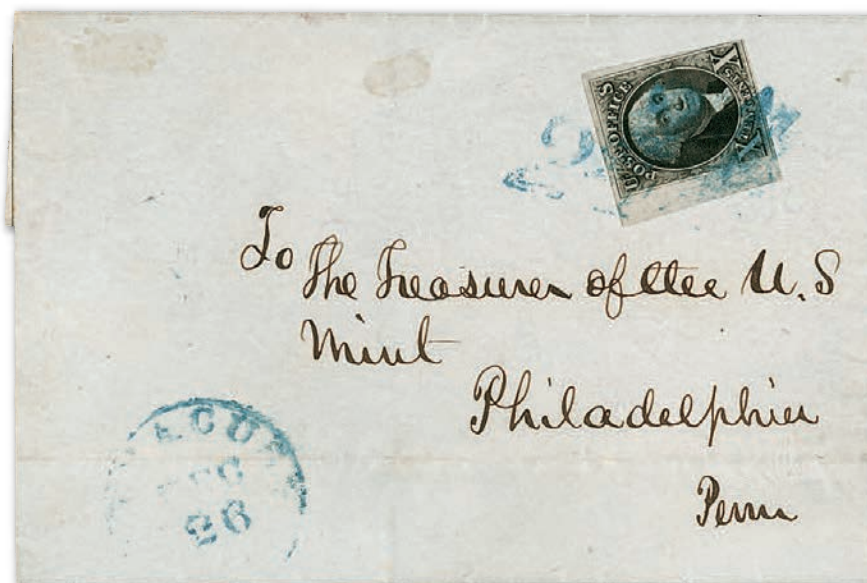 POST OFFICE
X CENTS X
To The Treasurer of the U.S
Mint
Philadelphia
Penn
DEC
26